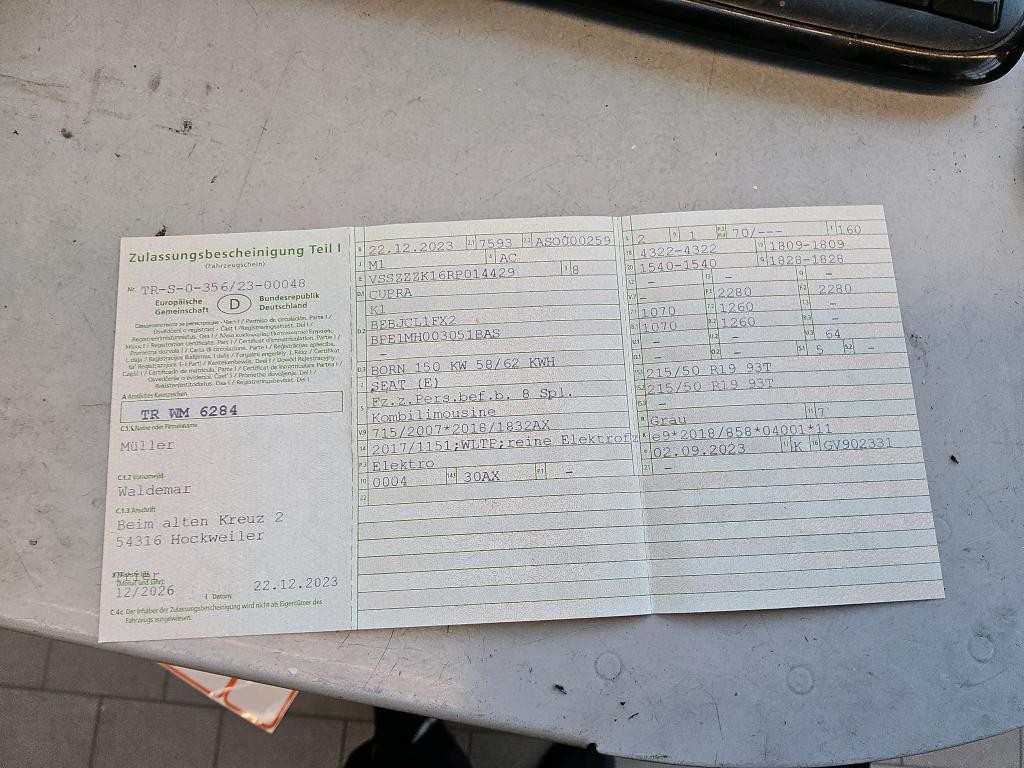 Zulassungsbescheinigung Teil I
(Fahrzeugschein)
Nr. TR-S-0-356/23-00048
Europäische Gemeinschaft
D
Bundesrepublik Deutschland
A Amtliches Kennzeichen
TR WM 6284
C.1.1 Name oder Firmenname
Müller
C.1.2 Vorname(n)
Waldemar
C.1.3 Anschrift
Beim alten Kreuz 2
54316 Hockweiler
12/2026
I Datum:
22.12.2023
C.4c Der Inhaber der Zulassungsbescheinigung wird nicht als Eigentümer des
Fahrzeugs ausgewiesen.
B 22.12.2023 2.1 7593 2.2 ASO000259
J M1 4 AC
E VSSZZZK16RP014429 3 8
D.1 CUPRA
K1
D.2 BEBJCL1FX2
BPE1MH003051BAS
–
D.3 BORN 150 KW 58/62 KWH
2 SEAT (E)
5 Fz.z.Pers.bef.b. 8 Spl.
Kombilimousine
V.9 715/2007*2018/1832AX
14 2017/1151;WLTP;reine Elektrofz
P.3 Elektro
10 0004 14.1 30AX P.1 –
22
L 2 9 1 P.2 P.4 70/--- T 160
18 4322-4322 19 1809-1809
20 1540-1540 G 1828-1828
12 – 13 – Q –
V.7 – F.1 2280 F.2 2280
7.1 1070 7.2 1260 7.3 –
8.1 1070 8.2 1260 8.3 –
U.1 – U.2 – U.3 64
O.1 – O.2 – S.1 5 S.2 –
15.1 215/50 R19 93T
15.2 215/50 R19 93T
15.3 –
R Grau 11 7
K e9*2018/858*04001*11
6 02.09.2023 17 K 16 GV902331
21 –